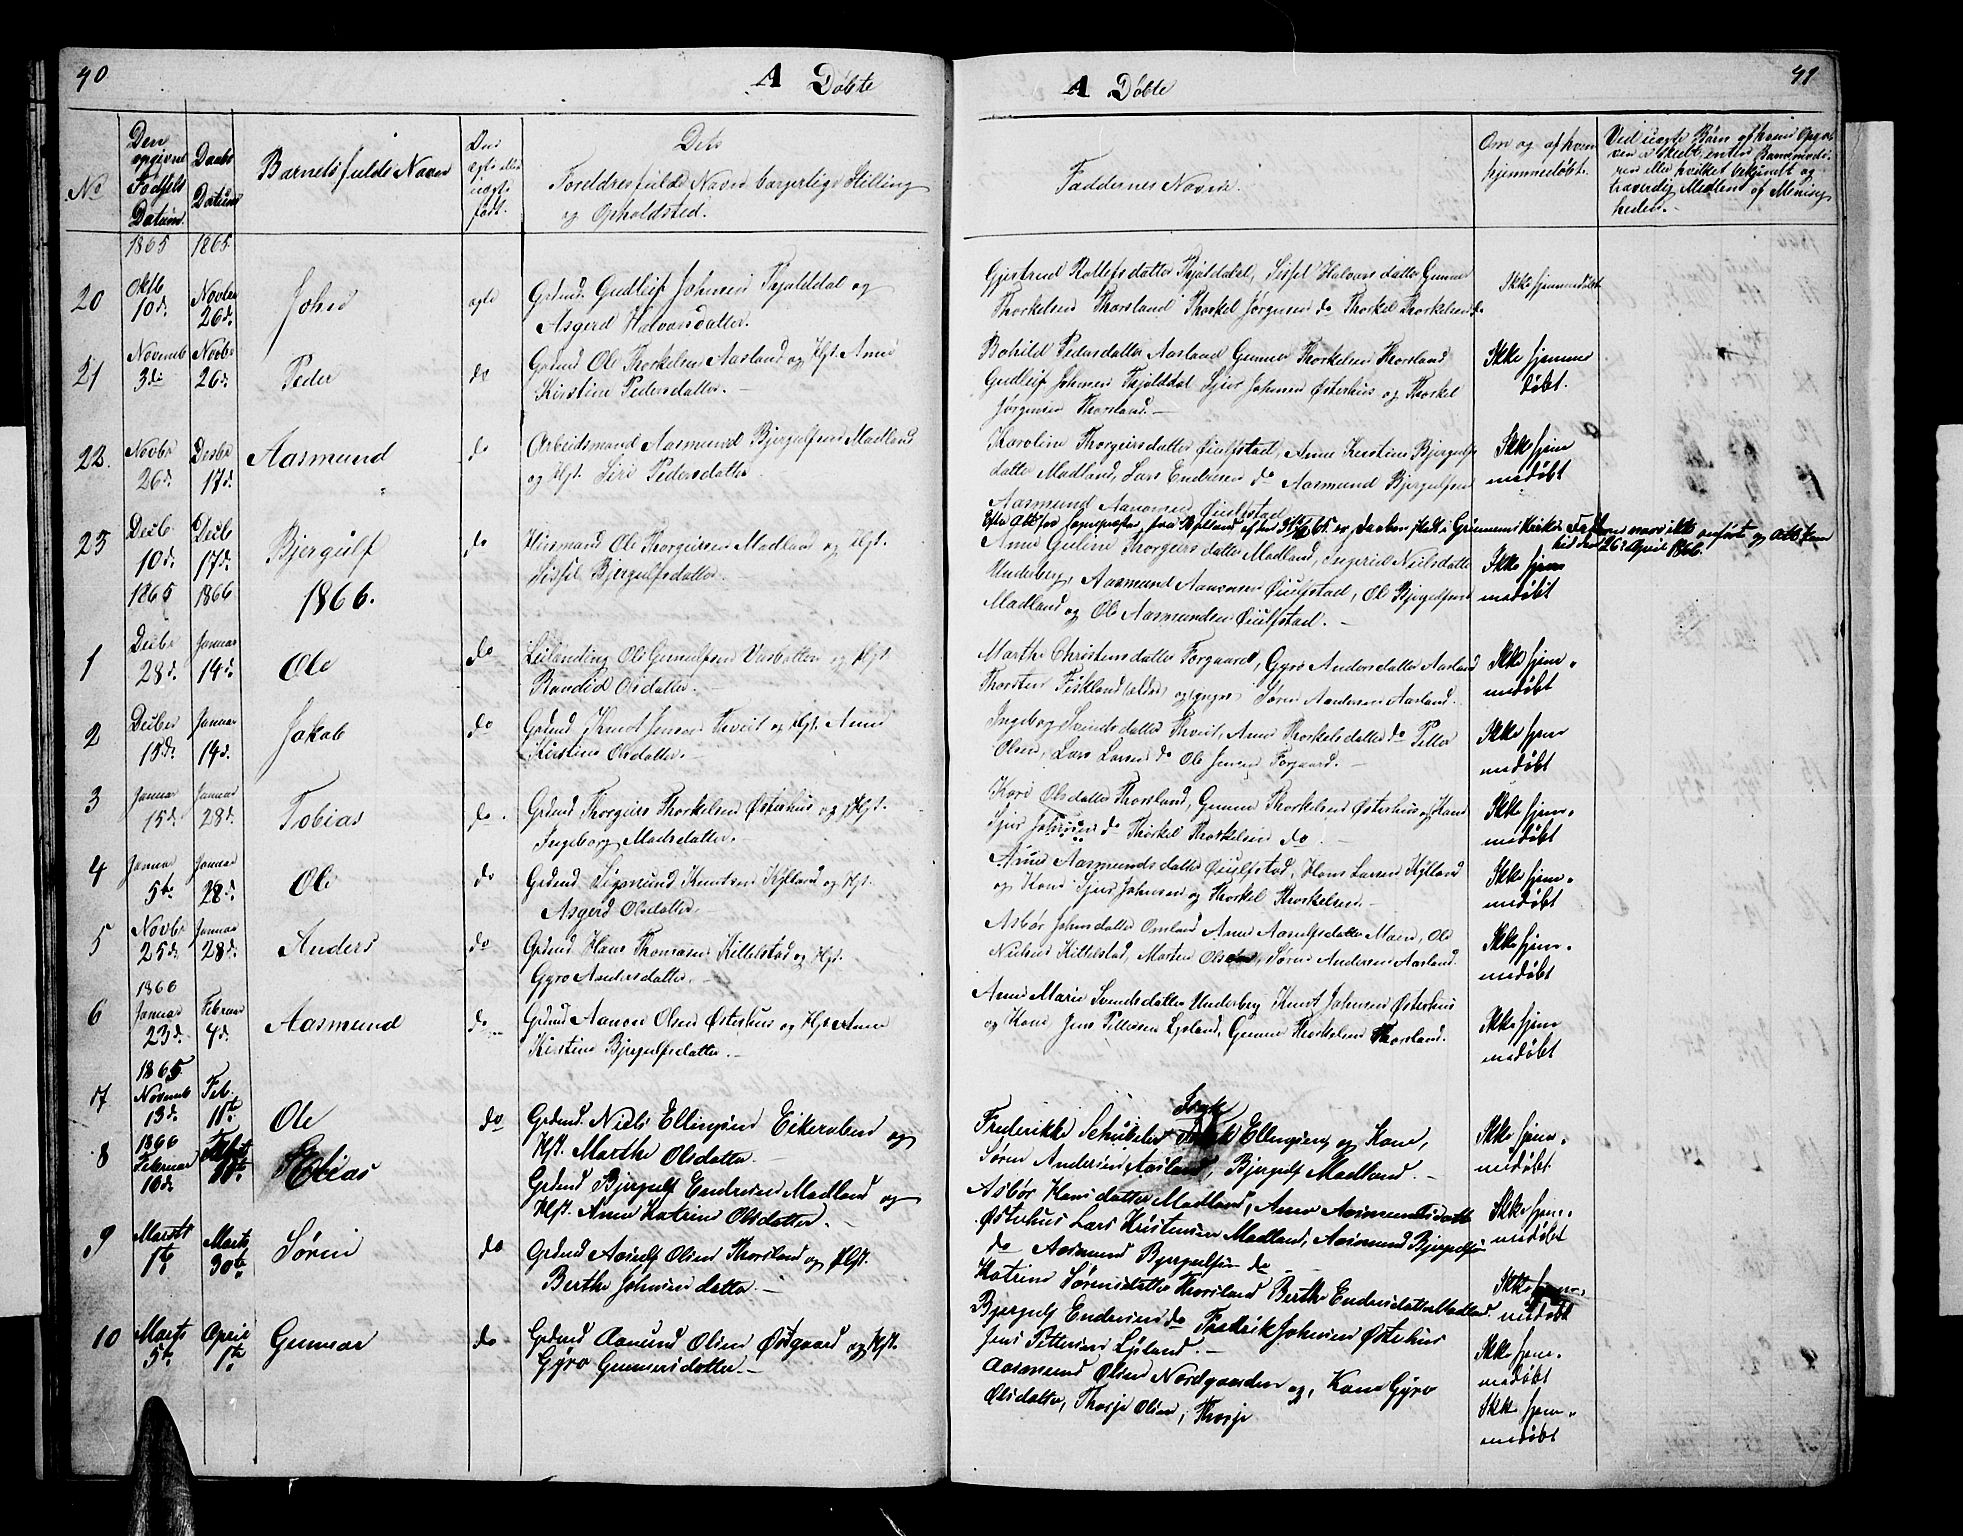 40
A Døbte
No
Den opgivne Fødsels Datum
Daabs Datum
Barnets fulde Navn
Om ægte eller uægte født.
Dets
Forældres fulde Navne borgerlige Stilling
og Opholdsted.
1865 1865
20 Oktb 10d. Novbr 26d. John ægte Grdmd. Gudleif Johnsen Fjalddal og
Asgerd Halvorsdatter.
21 Novemb 3di Novbr 26d. Peder do Grdmd Ole Thorkelsen Aasland og Hst. Anne
Kirstine Pedersdatter.
22. Novbr 26d. Desbr 17d. Aasmund do Arbeidsmand Aasmund Bjergulfsen Madland
og Hst. Siri Pedersdatter.
23 Decb 10d. Decb 17d. Bjergulf do Huusmand Ole Thorgeirsen Madland og Hst.
Sissel Bjergulfsdatter.
1865 1866 1866.
1 Decbr 28d. Januar 14d. Ole do Leilending Ole Gunulfsen Vasbotten og Hst.
Randid Olsdatter.
2 Decber 15d. Januar 14d. Jakob do Grdmd Knut Jensen Tveit og Hst. Anne
Kirstine Olsdatter.
3 Januar 15d. Januar 28d. Tobias do. Grdmd Thorgeir Thorkelsen Østerhus og Hst.
Ingeborg Madsdatter.
4 Januar 5te Januar 28d. Ole do Grdmd. Sigmund Knutsen Hylland og Hst.
Asgerd Olsdatter.
5 Novbr 25d. Januar 28d. Anders do Grdmd. Hans Thomasen Killelstad og Hst.
Gyro Andersdatter.
1866
6 Januar 23d. Februar 4d. Aasmund do Grdmd Aanon Olsen Østerhus og Hst Anne
Kirstine Bjergulfsdatter.
1865
7 Novemb 13d. Feb. 11te Ole do Grdmd. Niels Ellingsen Eikeroben og
Hst. Marthe Olsdatter.
1866
8 Februar 10d. 18te Elias Grdmd Bjergulf Endresen Madland og
Hst. Anne Katrine Olsdatter.
9 Marts 1te Marts 30te Søren do Grdmd Aasulf Olsen Thorsland og Hst.
Berthe Johnsen datter.
10 Marts 5te April 1te Gunnar do Grdmd Aanund Olsen Østgaard og Hst.
Gyro Gunnersdatter.
A Døbte
41
Faddernes Navne.
Om og af hvem
hjemmedøbt.
Ved uægte Børn af hvem Opga-
ven er skedt, enten Barnemode-
ren eller hvilket bekjendt og
troværdig Medlem af Menig-
heden.
Gjertrud Rollefsdatter Fjalddal, Sissel Halvorsdatter Gunner
Thorkelsen Thorsland Thorkel Jørgensen do Thorkel Thorkelsen do
Ikke hjemmedøbt
Bohild Pedersdatter Aasland Gunner Thorkelsen Thorsland
Gudleif Johnsen Fjalddal Sjur Johnsen Østerhus og Thorkel
Jørgensen Thorsland.
Ikke hjemme
døbt.
Karoline Thorgeirsdatter Øiulfstad, Anne Kirstine Bjergulfs
datter Madland, Lars Endresen do Aasmund Bjergulfsen
Aasmund Aanonsen Øiulfstad
Ikke hjem
medøbt
Anne Guline Thorgeirsdatter Madland, Ingerid Nielsdatter
Underberg, Aasmund Aanonsen Øiulfstad, Ole Bjergulfsen
Madland og Ole Aasmundsen Øiulfstad.
hid den 26d April 1866.
Ikke hjem
medøbt
Marthe Christensdatter Forgaard, Gyro Andersdatter Aasland
Thorsten Fiskland (ældre) og (yngre) Søren Andersen Aasland.
Ikke hjem-
medøbt
Ingeborg Svendsdatter Thveit, Anne Thorkelsdatter do Peller
Olsen, Lars Larsen do Ole Jensen Forgaard.
Ikke hjem
medøbt
Kari Olsdatter Thorsland, Gunner Thorkelsen Østerhus og Kone
Sjur Johnsen do Thorkel Thorkelsen do.
Ikke hjem-
medøbt
Anne Aasmundsdatter Øiulfstad, Hans Larsen Hylland
og Kone Sjur Johnsen og Thorkel Thorkelsen.
Ikke hjem-
medøbt
Asbør Johnsdatter Omland Anne Aasulfsdatter Moen, Ole
Nielsen Killelstad, Morten Olsen, Søren Andersen Aasland.
Ikke hjem-
medøbt
Anne Marie Svendsdatter Underberg Knut Johnsen Østerhus
og Kone Jens Pettersen Lyland, Gunner Thorkelsen Thorsland.
Ikke hjem
medøbt
Frederikke Schubeler Ellingsen og Kone,
Søren Andersen Aasland, Bjergulf Madland.
Ikke hjem-
medøbt
Asbør Hansdatter Madland, Anne Aasmundsdatter
Østerhus Lars Kristensen Madland, Aasmund Bjergulfsen
do Aasmund Bjergulfsen do
Ikke hjem-
medøbt
Katrine Sørensdatter Thorsland Berthe Endresdatter Madland
Bjergulf Endresen do Fredrik Johnsen Østerhus
Jens Pettersen Lyland.
Ikke hjem-
medøbt
Aasmund Olsen Nordgaarden og Kone Gyro
Olsdatter, Thorje Olsen, Thorje
Ikke hjem-
medøbt
Ikke hjem-
medøbt